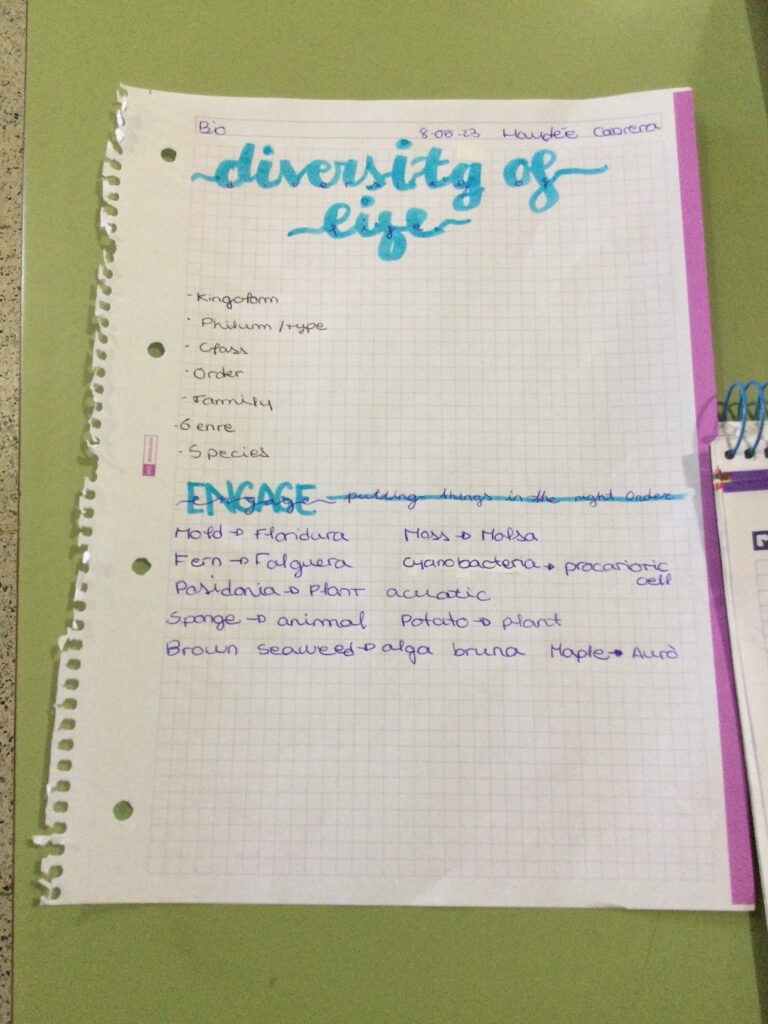 Bio 8-05-23 Haydée Cabrera
diversity of
life
- Kingdom
- Philum / type
- Class
- Order
- Family
- Genre
- Species
ENGAGE putting things in the right order
Mold → Floridura Moss → Molsa
Fern → Falguera Cyanobacteria → procariotic
cell
Posidonia → Plant acuatic
Sponge → animal Potato → plant
Brown seaweed → alga bruna Maple → Auró